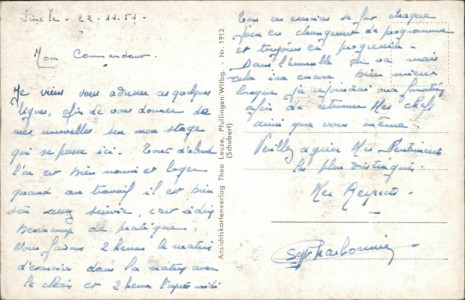 22.11.51.
Mon Commandant.
Je viens vous adresser quelques
lignes, afin de vous donner de
mes nouvelles sur mon stage
qui se passe ici. Tout d'abord
l'on est bien nourri et loger
quand au travail il est bien
c'est à dire
Beaucoup de pratique.
Nous faisons 2 heures le matin
d'exercice dans la nature avec
le chien et 2 heures l'après midi
Ansichtskartenverlag Theo Leuze, Pfullingen/Wttbg. - Nr. 1913
(Schubert)
Tous ces exercices se font chaque
jour en changement de programme
et toujours en progressif.
Dans l'ensemble on va mais
cela ira encore bien mieux
lorsque je rejoindrai
afin de retrouver Mes chefs
ainsi que vous même.
Veuillez agréer Mes Sentiments
les plus Distingués.
Mes Respects.
Sgt Charbonnier